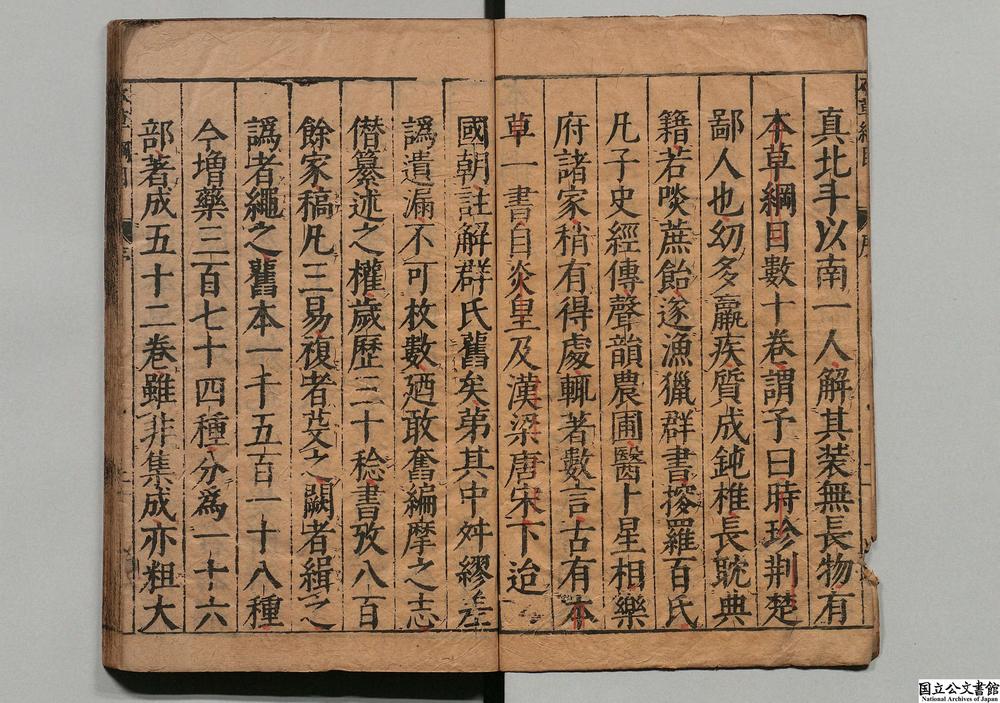 真北斗以南一人解其装無長物有
本草綱目數十卷謂予曰時珍荆楚
鄙人也幼多羸疾質成鈍椎長躭典
籍若啖蔗飴遂漁獵群書搜羅百氏
凡子史經傳聲韻農圃醫卜星相樂
府諸家稍有得處輒著數言古有本
草一書自炎皇及漢梁唐宋下迨
國朝註解群氏舊矣第其中舛繆差
譌遺漏不可枚數廼敢奮編摩之志
僣纂述之權歲歷三十稔書攷八百
餘家稿凡三易複者芟之闕者緝之
譌者繩之舊本一千五百一十八種
今增藥三百七十四種分爲一十六
部著成五十二卷雖非集成亦粗大
国立公文書館
National Archives of Japan